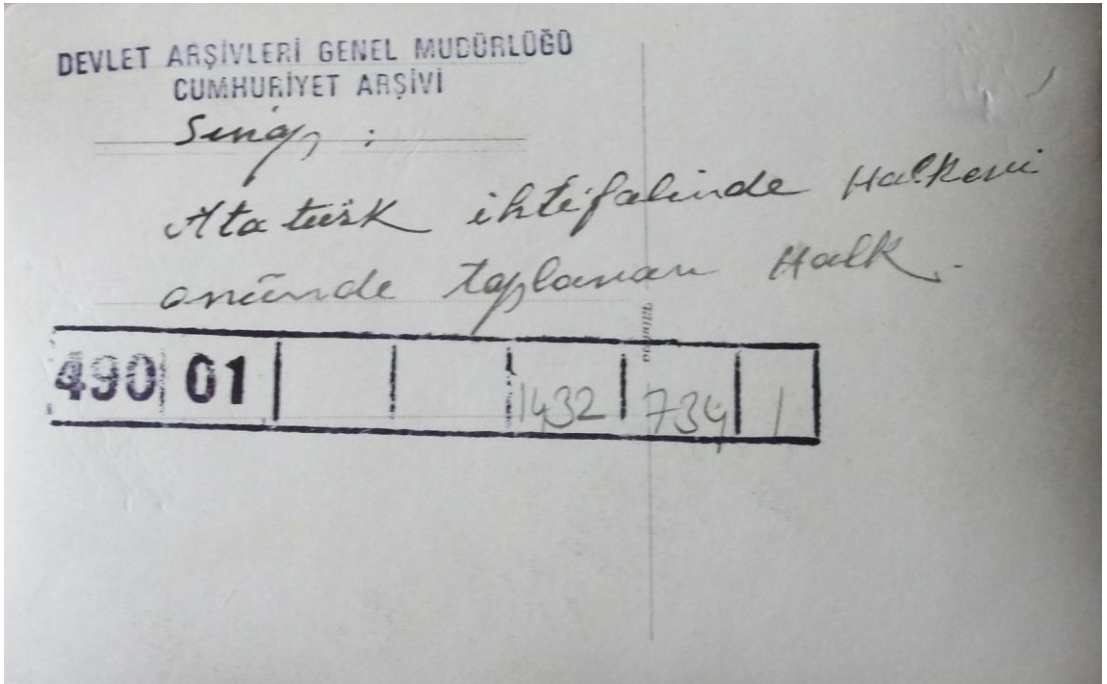 DEVLET ARŞİVLERİ GENEL MÜDÜRLÜĞÜ
CUMHURİYET ARŞİVİ
Sinop :
Atatürk ihtifalinde Halkevi
önünde toplanan Halk.
490 01 1432 734 1